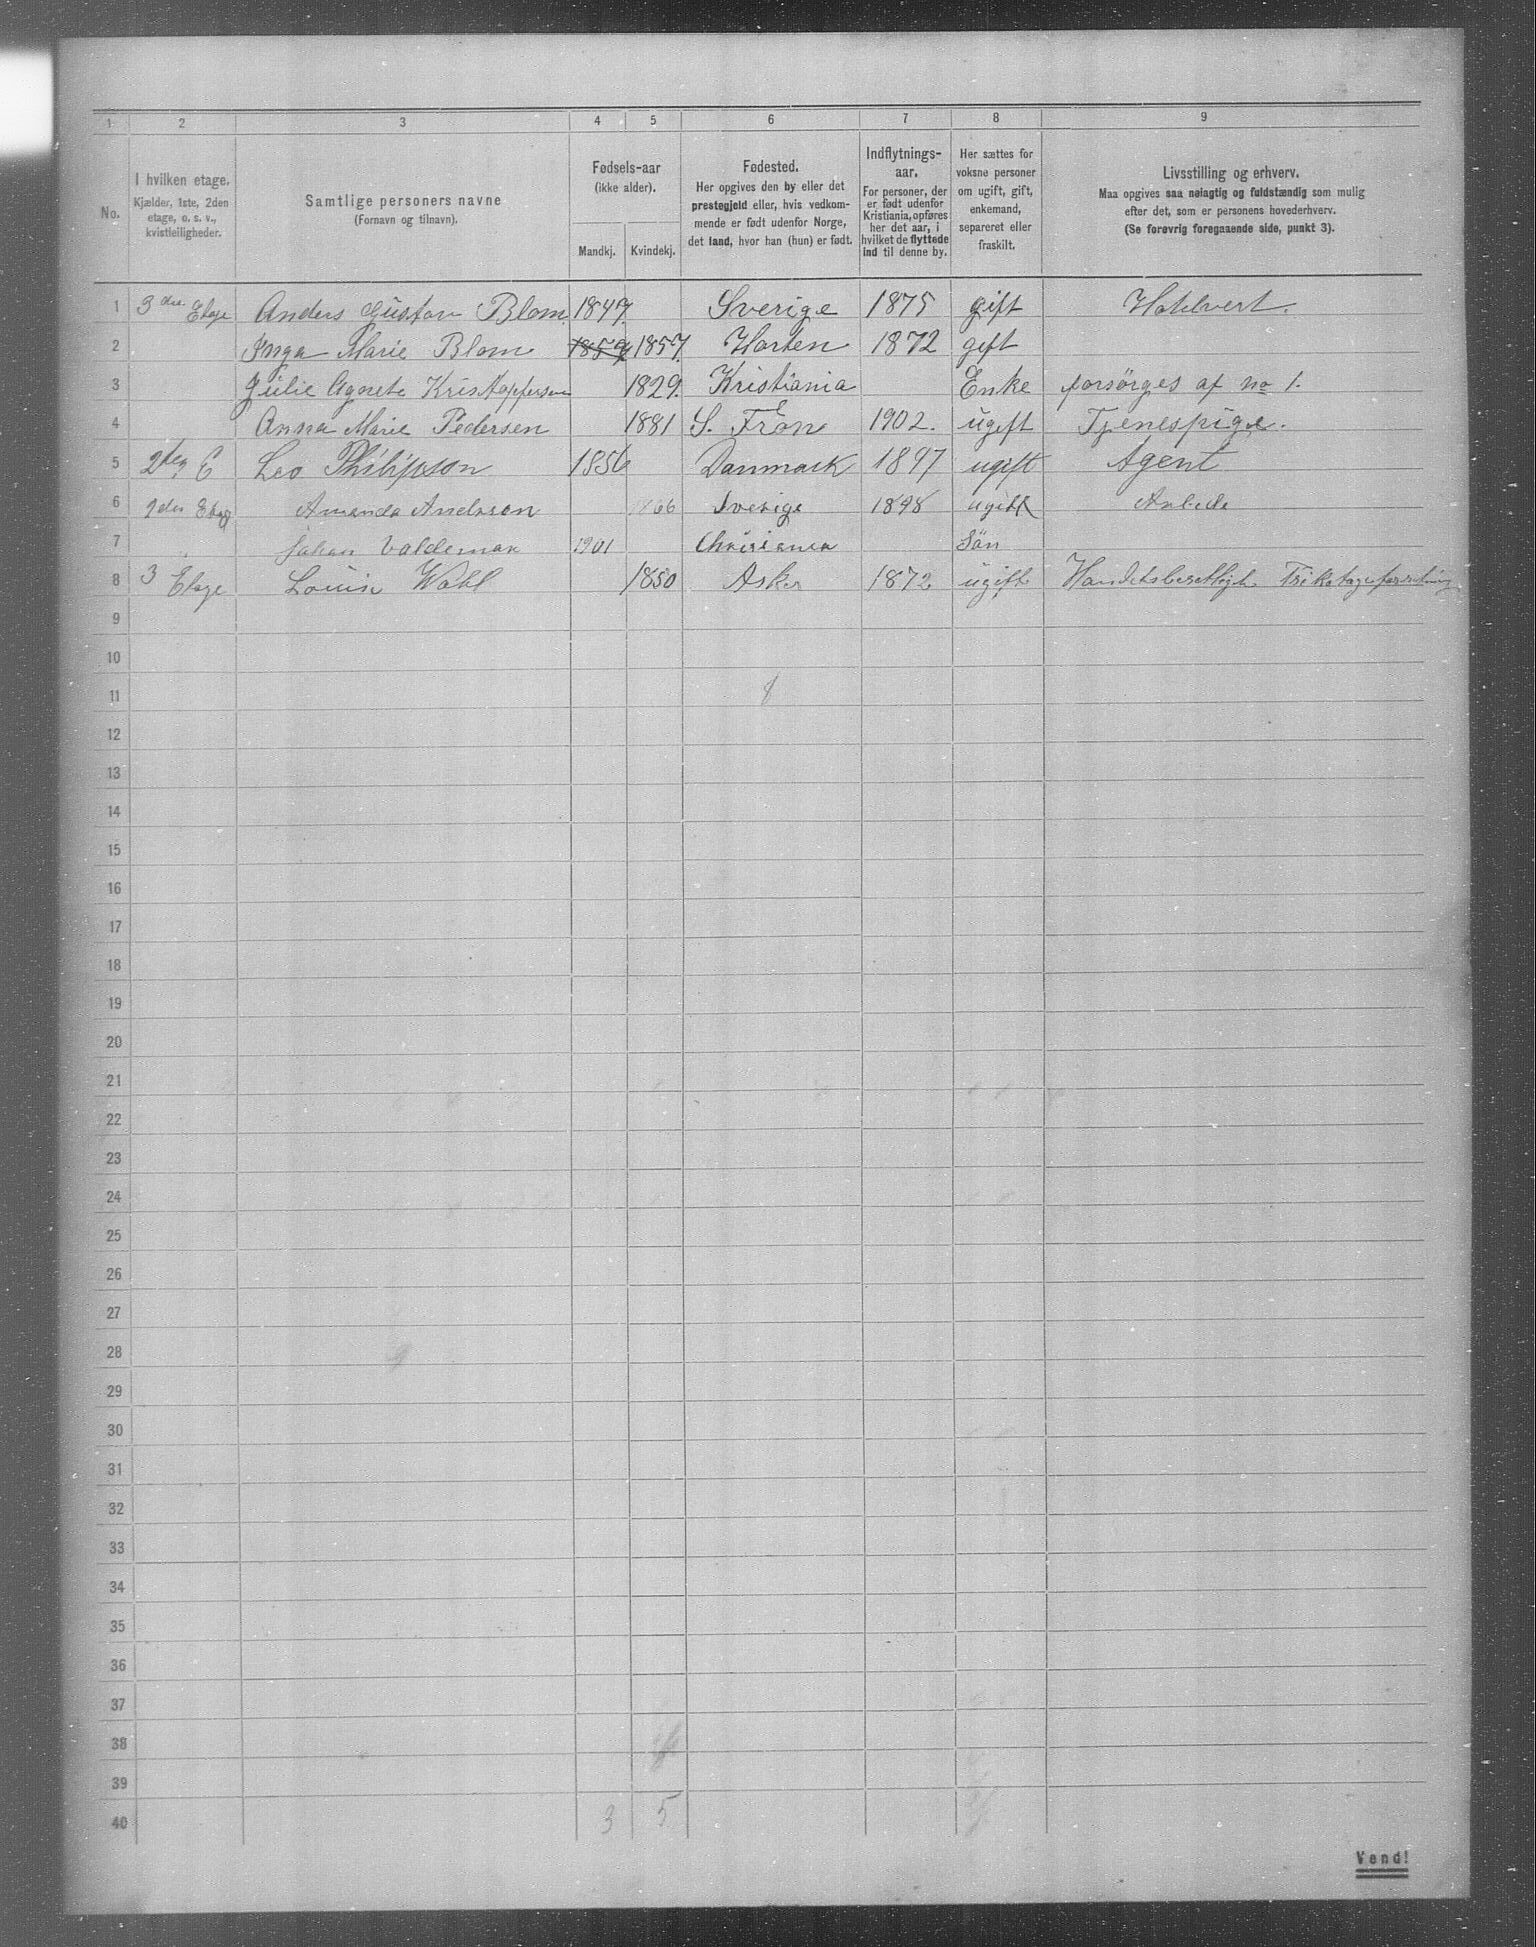 1 2 3 4 5 6 7 8 9
No.
I hvilken etage.
Kjælder, 1ste, 2den
etage, o. s. v.,
kvistleiligheder.
Samtlige personers navne
(Fornavn og tilnavn).
Fødsels-aar
(ikke alder).
Mandkj. Kvindekj.
Fødested.
Her opgives den by eller det
prestegjeld eller, hvis vedkom-
mende er født udenfor Norge,
det land, hvor han (hun) er født.
Indflytnings-
aar.
For personer, der
er født udenfor
Kristiania, opføres
her det aar, i
hvilket de flyttede
ind til denne by.
Her sættes for
voksne personer
om ugift, gift,
enkemand,
separeret eller
fraskilt.
Livsstilling og erhverv.
Maa opgives saa nøiagtig og fuldstændig som mulig
efter det, som er personens hovederhverv.
(Se forøvrig foregaaende side, punkt 3).
1 3die Etage Anders Gustav Blom 1847 Sverige 1875 gift
2 Inga Marie Blom 1859 1857. Horten 1872 gift
3 Julie Agnete Kristoffersen 1829. Kristiania Enke forsörges af no 1.
4 Anna Marie Pedersen 1881 S. Fron 1902. ugift Tjenespige.
5 2den E Leo Philipson 1856 Danmark 1897 ugift Agent
6 2den Etage Amanda Anderson 1866 Sverige 1898 ugift Arbeide
7 " Johan Valdemar 1901 Christiania Sön
8 3 Etage Louise Wahl 1850 Asker 1872 ugift Trikotageforretning
9
10
11 8
12
13
14
15
16
17
18
19
20
21
22
23
24
25
26
27
28
29
30
31
32
33
34
35
36
37
38
39
40 3 5
Vend!